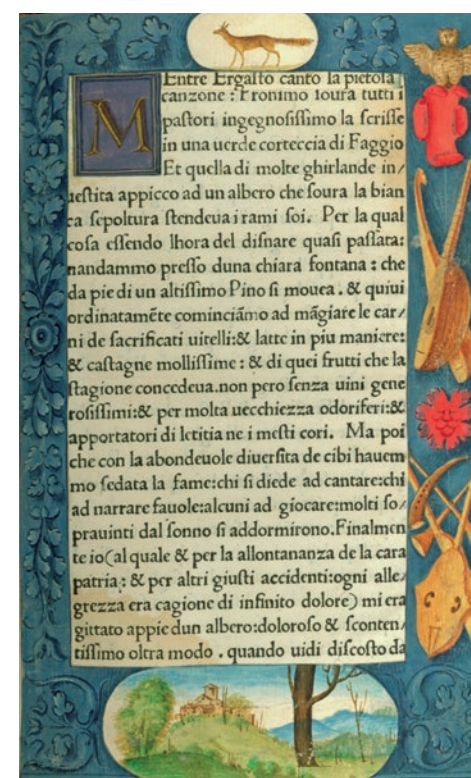 MEntre Ergasto canto la pietosa
canzone : Fronimo soura tutti i
pastori ingegnosissimo la scrisse
in una uerde corteccia di Faggio
Et quella di molte ghirlande in/
uestita appicco ad un albero che soura la bian
ca sepoltura stendeua i rami soi. Per la qual
cosa essendo lhora del disnare quasi passata:
nandammo presso duna chiara fontana : che
da pie di un altissimo Pino si mouea . & quiui
ordinatamẽte cominciãmo ad mãgiare le car/
ni de sacrificati uitelli:& latte in piu maniere:
& castagne mollissime : & di quei frutti che la
stagione concedeua.non pero senza uini gene
rosissimi:& per molta uecchiezza odoriferi:&
apportatori di letitia ne i mesti cori. Ma poi
che con la abondeuole diuersita de cibi hauem
mo sedata la fame:chi si diede ad cantare:chi
ad narrare fauole:alcuni ad giocare:molti so/
prauinti dal sonno si addormirono.Finalmen
te io(al quale & per la allontananza de la cara
patria : & per altri giusti accidenti:ogni alle/
grezza era cagione di infinito dolore) mi era
gittato appie dun albero:doloroso & sconten/
tissimo oltra modo . quando uidi discosto da